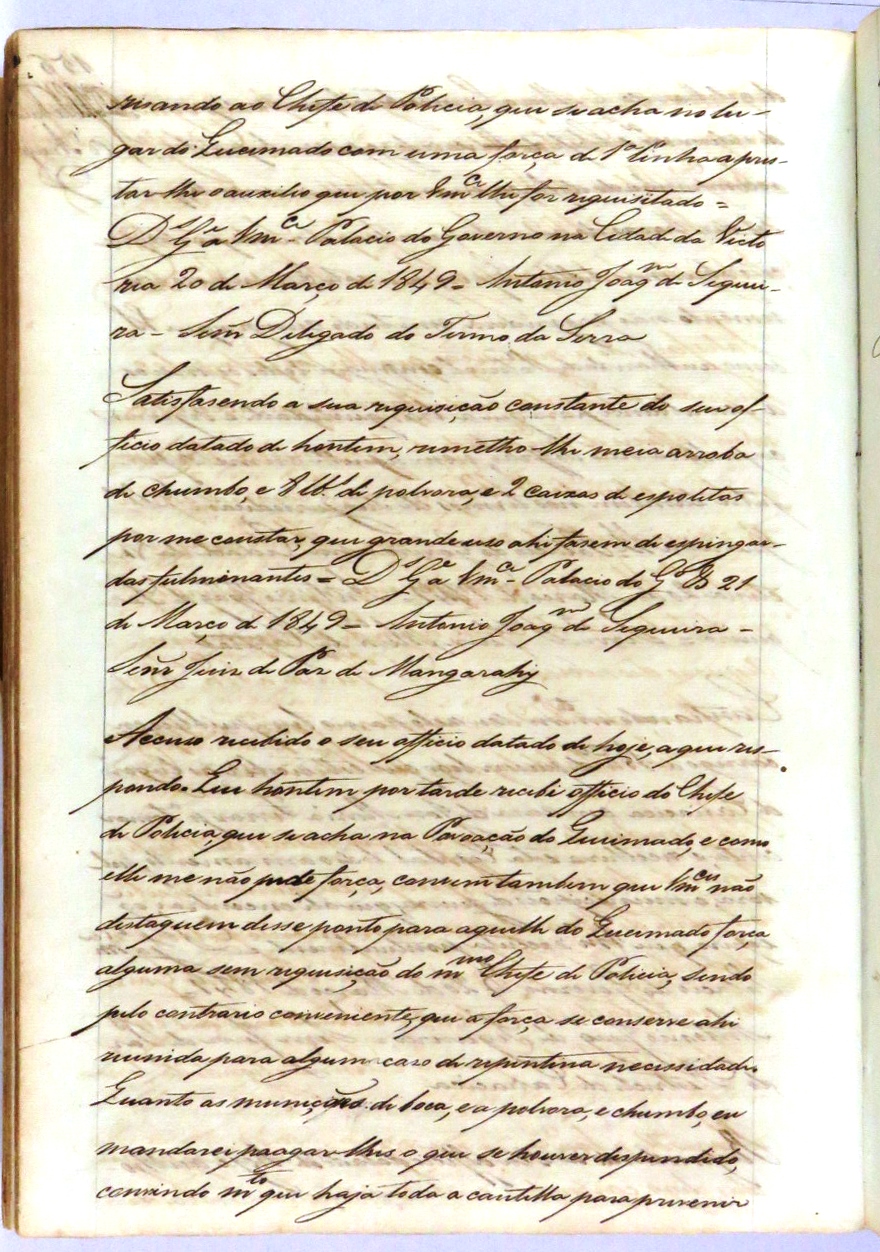 risando ao Chefe de Policia, que se acha no lu-
gar do Queimado com uma força de 1ª linha a pres-
tar-lhe o auxilio que por Vmce lhe for requisitado =
Ds Ge a Vmce - Palacio do Governo na Cidade da Victo
ria 20 de Março de 1849 - Antonio Joaqm de Siquei-
ra - Senr Delegado do Termo da Serra
Satisfasendo a sua requisição constante do seu of-
ficio datado de hontem, remetto-lhe meia arroba
de chumbo, e 8 lbs de polvora, e 2 caixas de espoletas
por me constar, que grande uso ahi fasem de espingar-
das fulminantes = Ds Ge a Vmce - Palacio do Go 21
de Março de 1849 - Antonio Joaqm de Siqueira -
Senr Juiz de Paz de Mangarahy
Accuso recebido o seu officio datado de hoje, a que res-
pondo. Que hontem por tarde recebi officio do Chefe
de Policia, que se acha na Povoação do Queimado, e como
elle me não pede força, convem tambem que Vmces não
destaquem desse ponto para aquelle do Queimado força
alguma sem requisição do mmo Chefe de Policia, sendo
pelo contrario conveniente, que a força se conserve ahi
reunida para algum caso de repentina necessidade.
Quanto as munições de boca, e a polvora, e chumbo, eu
mandarei paagar-lhes o que se houver despendido,
convindo mto que haja toda a cautella para prevenir